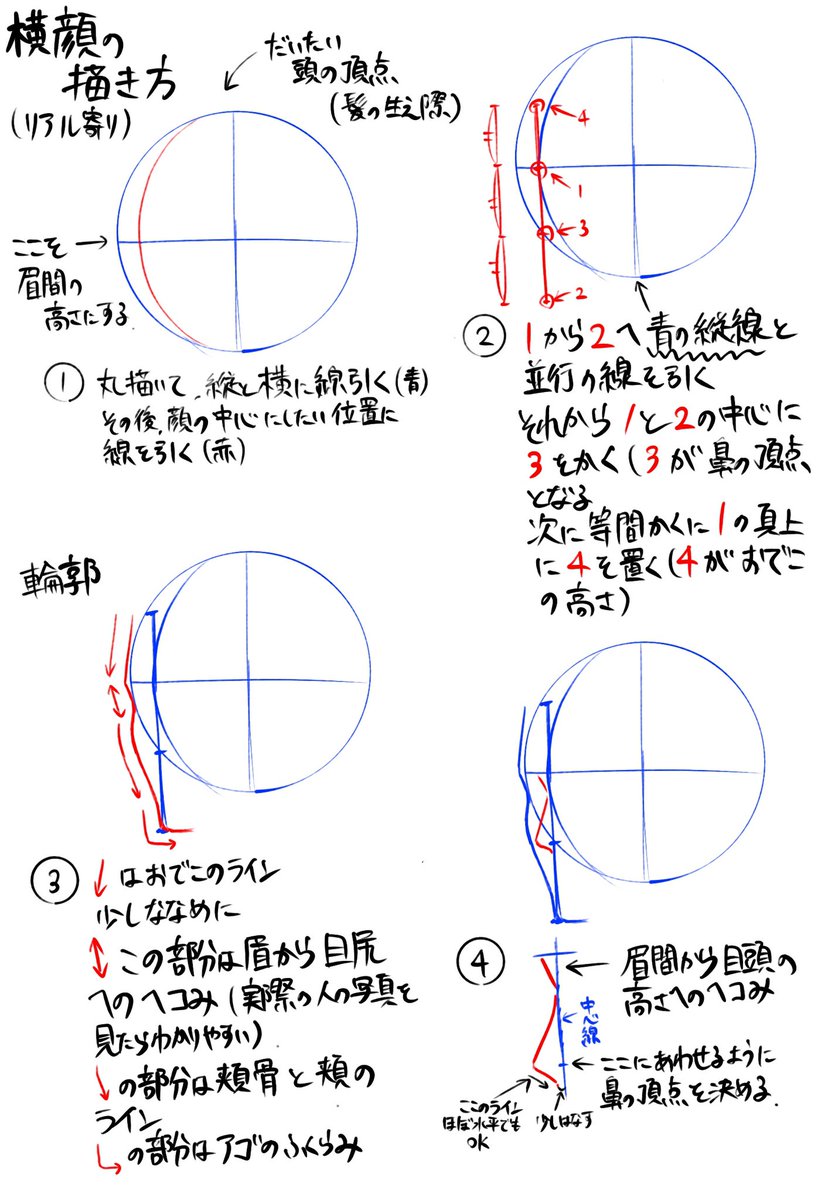 横顔の
描き方
(リアル寄り)
だいたい
頭の頂点
(髪の生え際)
ここを
眉間の
高さにする
① 丸描いて、縦と横に線引く(青)
その後、顔の中心にしたい位置に
線を引く(赤)
4
1
3
2
② 1から2へ青の縦線と
並行の線を引く
それから1と2の中心に
3をかく(3が鼻の頂点
となる
次に等間かくに1の真上
に4を置く(4がおでこ
の高さ)
輪郭
③ ↓はおでこのライン
少しななめに
↕この部分は眉から目尻
へのヘコみ(実際の人の写真を
見たらわかりやすい)
↘の部分は頬骨と頬の
ライン
↳の部分はアゴのふくらみ
④
眉間から目頭の
高さへのヘコみ
中心線
ここにあわせるように
鼻の頂点を決める
このライン
ほぼ水平でも
OK
少しはなす